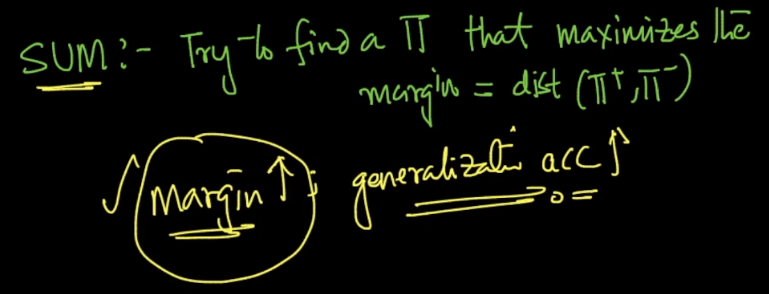 SVM:- Try to find a π that maximizes the
margin = dist (π⁺, π⁻)
✓ margin ↑; generalizati acc ↑